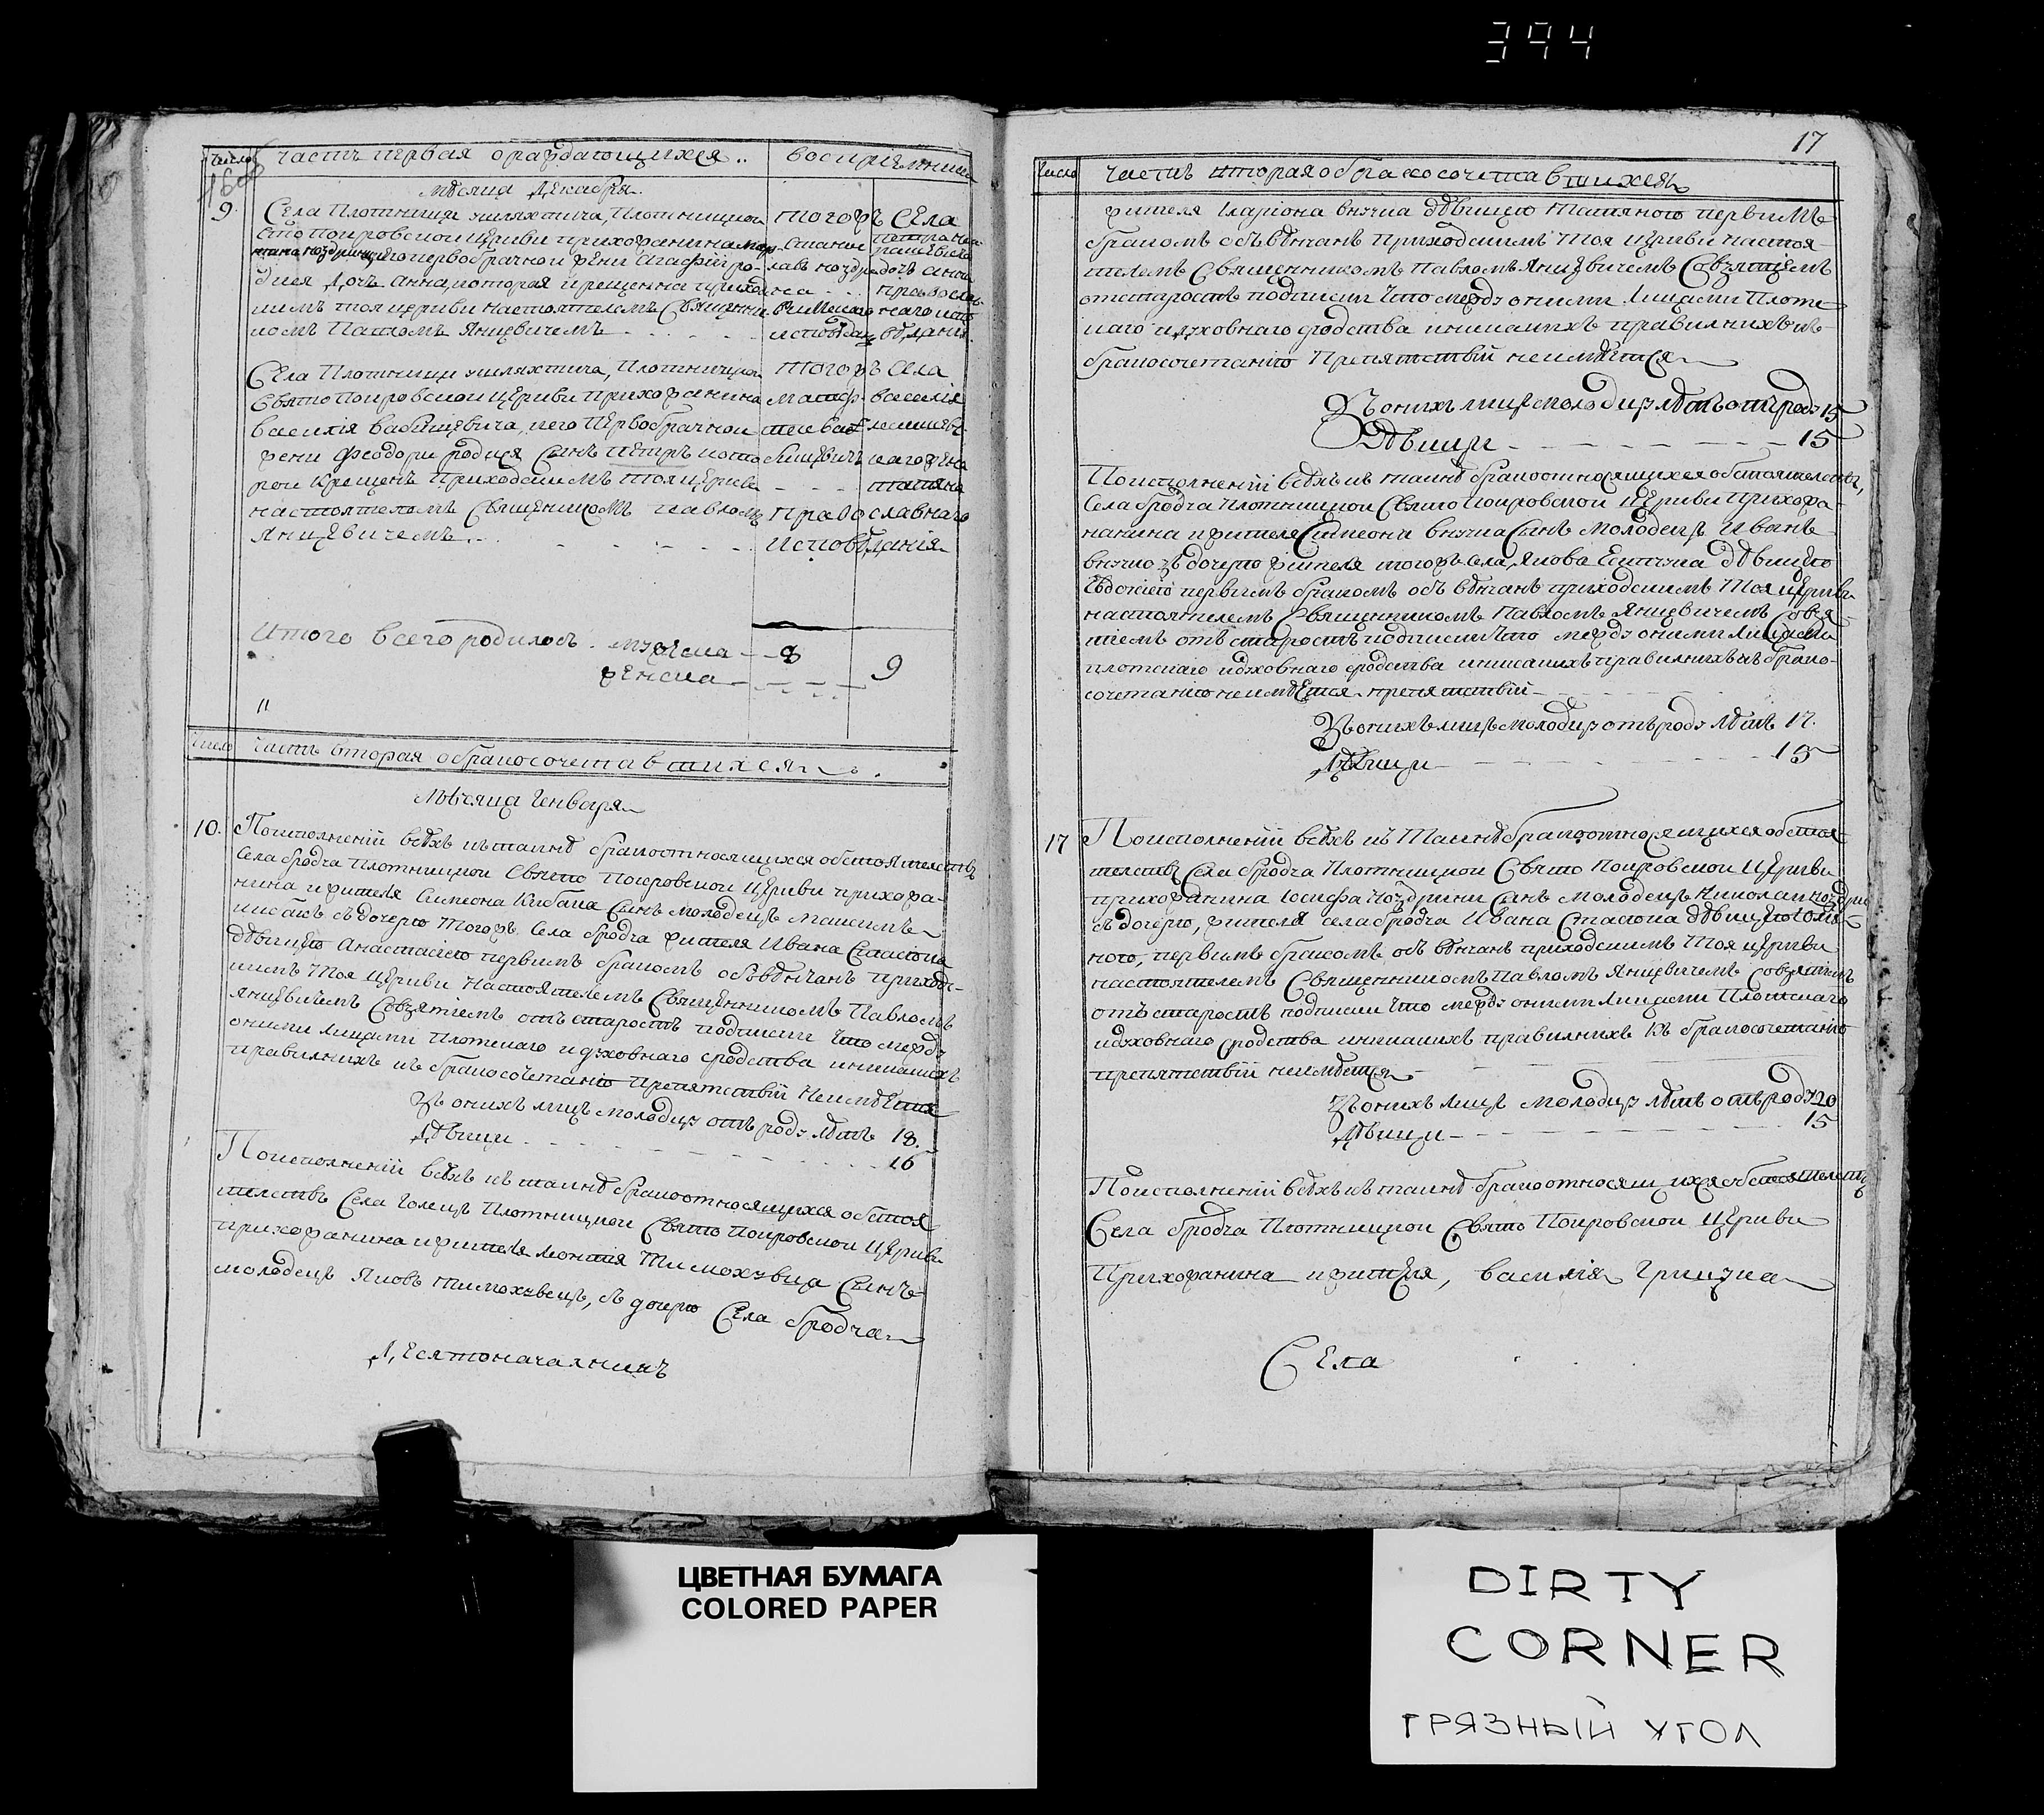 394
Число
часть первая о раждающихся..
восприемники
мѣсяца Декабря.
9.
Села Плотници шляхтича, Плотницкои
тогожъ Села
Свято Покровскои Церкви прихожанина
его первобрачнои жени Агафiи ро-
дися дочь Анна, которая крещенна приход-
скимъ тоя церкви настоятелемъ Священни
комъ Павломъ Яницвичемъ
Села Плотници шляхтича, Плотницкои
тогожъ Села
Свято Покровскои Церкви прихожанина
василiя
василiя его первобрачнои
жени Феодори родися Синъ петръ кото
рои крещенъ Приходскимъ Тоя церкви
татяна
настоятелемъ Священикомъ Павломъ
православнаго
Яницвичемъ
исповѣданiя
Итого всего родилось. мужеска 8
женска 9
Число
часть вторая о бракосочетавшихся
Мѣсяца Генваря
10.
Поисполненiи всѣхъ къ таинѣ брака относящихся обстоятелствъ
Села бродча Плотницкои Свято Покровскои Церкви прихожа-
нина и жителя Симеона Кибака Синъ молодецъ Максимъ
съ дочерю Тогожъ Села бродча жителя Ивана
дѣвицею Анастасiею первимъ бракомъ объвѣнчанъ приход-
скимъ Тоя Церкви Настоятелемъ Священникомъ Павломъ
Яницвичемъ Совзятiемъ отъ старостъ подписки Что между
оними Лицами Плотскаго идуховнаго сродства иникакихъ
правилнихъ къ бракосочетанiю препятствiи Неимѣется
Зъ онихъ лицъ молодцу отъ роду лѣтъ 18.
Дѣвици 16
Поисполненiи всѣхъ къ таинѣ брака относящихся обстоя
телствъ Села Голецъ Плотницкои Свято Покровскои Церкви
прихожанина ижителя Леонтiя Тимохувца Синъ
молодецъ Яковъ Тимохувецъ, съ дочерю Села бродча
Десятоначалникъ
17
Число
Часть вторая о бракосочетавшихся
жителя Iларiона внучка дѣвицею Татяною первимъ
бракомъ объвѣнчанъ приходскимъ Тоя церкви настоя-
телемъ Священникомъ Павломъ Яницвичемъ Совзятiемъ
отстаростъ подписки Что между оними Лицами Плотс
каго идуховнаго сродства иникакихъ правилнихъ къ
бракосочетанiю Препятствiи неимѣется
Зъ онихъ лицъ молодцу лѣтъ отъ роду 15
Дѣвици 15
Поисполненiи всѣхъ къ таинѣ брака относящихся обстоятелствъ,
Села бродча Плотницкои Свято Покровскои Церкви прихожа-
нанина ижителя Симеона внучка Синъ Молодецъ Иванъ
внучко зъ дочерю жителя тогожъ села, Якова дѣвицею
Евдокiею первимъ бракомъ объ вѣнчанъ приходскимъ Тоя церкви
настоятелемъ Священникомъ Павломъ Яницвичемъ Совзя
тiемъ отъ старостъ подписки Что между оними лицами
плотскаго идуховнаго сродства иникакихъ правилнихъ къ брако-
сочетанiю неимѣется препятствiи
Зъ онихъ лицъ молодцу отъ роду лѣтъ 17.
Дѣвици 15
17
Поисполненiи всѣхъ къ Таинѣ брака относящихся обстоя
телствъ Села бродча Плотницкои Свято Покровскои Церкви
прихожанина Iосифа Ноздрини Синъ молодецъ Николаи
съ дочерю, жителя села бродча Ивана дѣвицею
ною, первимъ бракомъ объ вѣнчанъ приходскимъ Тоя церкви
настоятелемъ Священникомъ Павломъ Яницвичемъ Совзятiемъ
отъ старостъ подписки Что между оними Лицами Плотскаго
идуховнаго сродства иникакихъ правилнихъ къ бракосочетанiю
препятствiи неимѣется
Зъ онихъ Лицъ молодцу лѣтъ отъ роду 20
Дѣвици 15
Поисполненiи всѣхъ къ таинѣ брака относящихся обстоятелствъ
Села бродча Плотницкои Свято Покровскои Церкви
Прихожанина ижителя, василiя Грицука
Села
ЦВЕТНАЯ БУМАГА
COLORED PAPER
DIRTY
CORNER
ГРЯЗНЫЙ УГОЛ